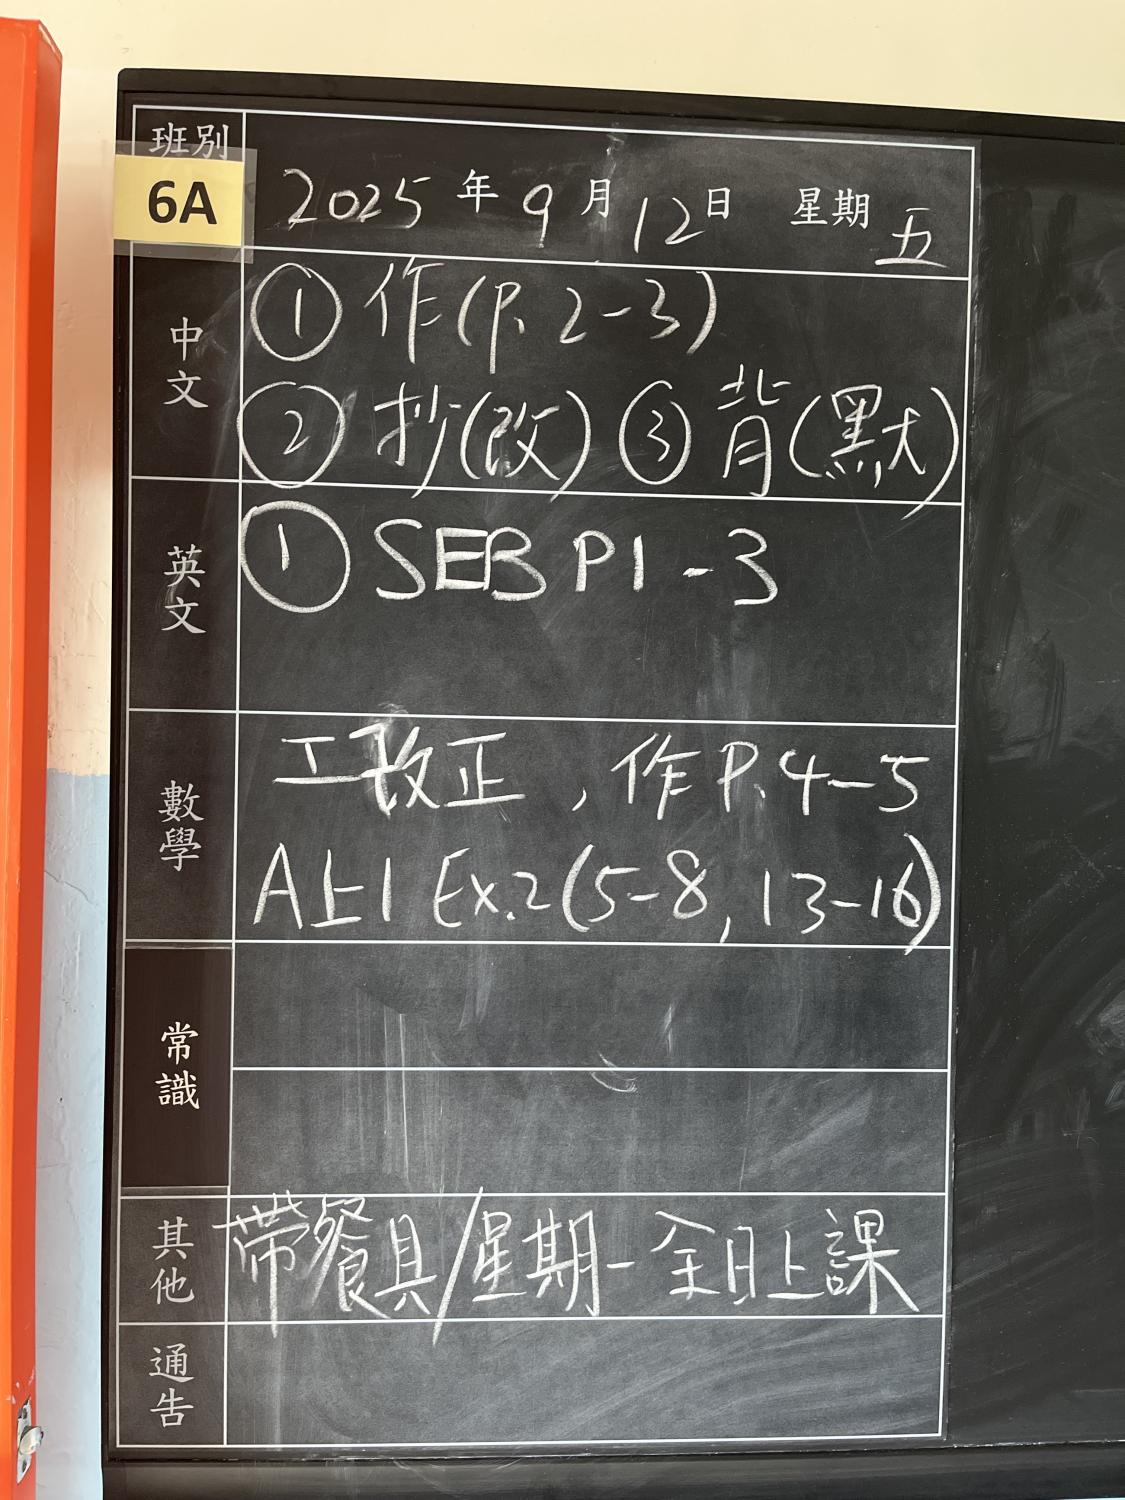 班別
6A
2025年9月12日 星期五
中文
① 作(P. 2-3)
② 抄(改) ③ 背(默)
英文
① SEB P1-3
數學
工改正,作P.4-5
A上1 Ex.2(5-8, 13-16)
常識
其他
帶餐具/星期一全日上課
通告